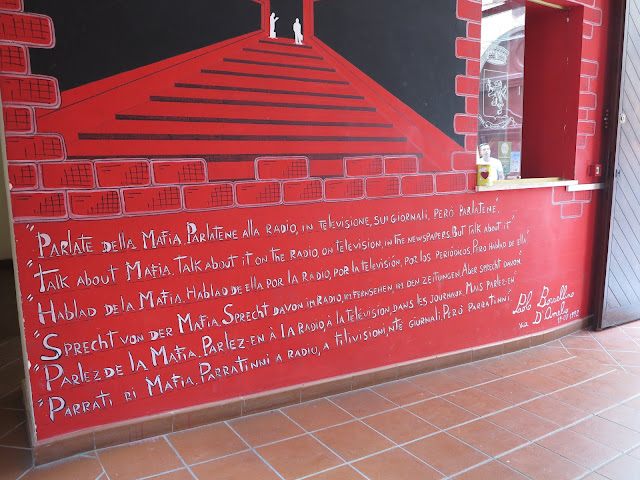 "Parlate della Mafia. Parlatene alla radio, in televisione, sui giornali, però parlatene."
"Talk about Mafia. Talk about it on the radio, on television, in the newspapers. But talk about it"
"Hablad de la Mafia. Hablad de ella por la radio, por la televisión, por los periódicos. Pero hablad de ella"
"Sprecht von der Mafia. Sprecht davon im Radio, im Fernsehen in den Zeitungen. Aber sprecht davon"
"Parlez de la Mafia. Parlez-en à la radio, à la télévision, dans les journaux. Mais parlez-en"
"Parrati ri Mafia. Parratinni a radio, a tilivisioni, nte giornali. Però parratinni"
Paolo Borsellino
via D'Amelio
19-07-1992